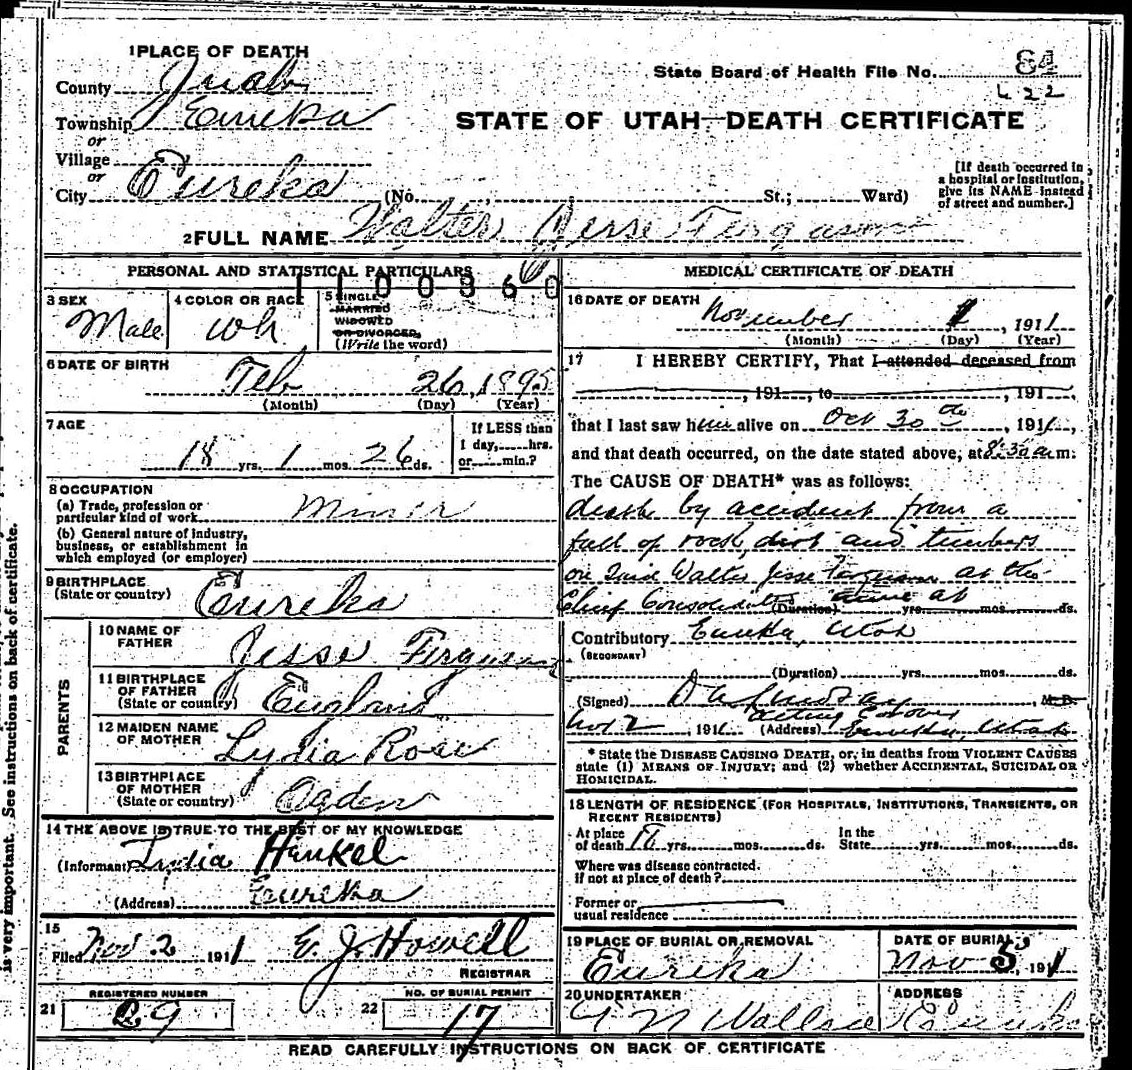 1 PLACE OF DEATH
County Juab
Township Eureka
or
Village
or
City Eureka (No. St.; Ward)
State Board of Health File No. 84
422
STATE OF UTAH—DEATH CERTIFICATE
[If death occurred in a hospital or institution, give its NAME instead of street and number.]
2 FULL NAME Walter Jesse Ferguson
PERSONAL AND STATISTICAL PARTICULARS
1100360
3 SEX
Male
4 COLOR OR RACE
Wh
5 SINGLE
MARRIED
WIDOWED
OR DIVORCED
(Write the word)
6 DATE OF BIRTH
Feb 26, 1895
(Month) (Day) (Year)
7 AGE
18 yrs. 1 mos. 26 ds.
If LESS than
1 day, hrs.
or min.?
8 OCCUPATION
(a) Trade, profession or
particular kind of work Miner
(b) General nature of industry,
business, or establishment in
which employed (or employer)
9 BIRTHPLACE
(State or country) Eureka
PARENTS
10 NAME OF
FATHER Jesse Ferguson
11 BIRTHPLACE
OF FATHER
(State or country) England
12 MAIDEN NAME
OF MOTHER Lydia
13 BIRTHPLACE
OF MOTHER
(State or country) Ogden
14 THE ABOVE IS TRUE TO THE BEST OF MY KNOWLEDGE
(Informant) Lydia Hinkel
(Address) Eureka
15
Filed Nov 2 1911 E. J. Howell
REGISTRAR
REGISTERED NUMBER
21 29
NO. OF BURIAL PERMIT
22 17
MEDICAL CERTIFICATE OF DEATH
16 DATE OF DEATH
November 1, 1911
(Month) (Day) (Year)
17 I HEREBY CERTIFY, That I attended deceased from
, 191 , to , 191 ,
that I last saw him alive on Oct 30th, 1911,
and that death occurred, on the date stated above, at 8:30 a m.
The CAUSE OF DEATH* was as follows:
death by accident from a
fall of rock, dirt and timbers
on said Walter Jesse Ferguson at the
Chief Consolidated mine at (Duration) yrs. mos. ds.
Contributory Eureka, Utah
(SECONDARY)
(Duration) yrs. mos. ds.
(Signed) , M. D.
acting
Nov 2, 1911 (Address) Eureka, Utah
* State the DISEASE CAUSING DEATH, or, in deaths from VIOLENT CAUSES
state (1) MEANS OF INJURY; and (2) whether ACCIDENTAL, SUICIDAL OR
HOMICIDAL.
18 LENGTH OF RESIDENCE (FOR HOSPITALS, INSTITUTIONS, TRANSIENTS, OR
RECENT RESIDENTS)
At place
of death 18 yrs. mos. ds. In the
State yrs. mos. ds.
Where was disease contracted.
If not at place of death?
Former or
usual residence
19 PLACE OF BURIAL OR REMOVAL
Eureka
DATE OF BURIAL
Nov 5, 1911
20 UNDERTAKER
Wallace
ADDRESS
Eureka
READ CAREFULLY INSTRUCTIONS ON BACK OF CERTIFICATE
is very important. See instructions on back of certificate.